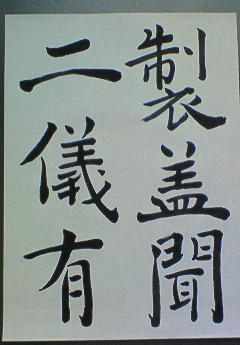 製盖聞
二儀有